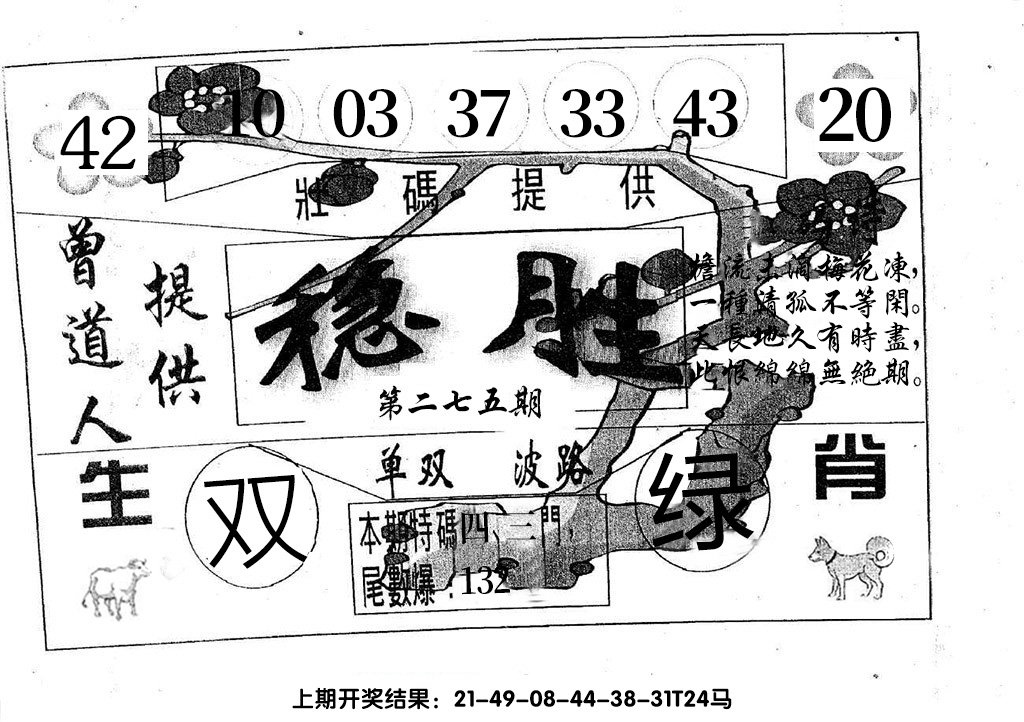 42 10 03 37 33 43 20
壯碼提供
曾道人
提供
稳胜
第二七五期
檐流土滴梅花凍，
一種請孤不等閑。
天長地久有時盡，
此恨綿綿無絶期。
单双 波路
生肖
双 绿
本期特碼四、三門，
尾數爆：132
上期开奖结果：21-49-08-44-38-31T24马